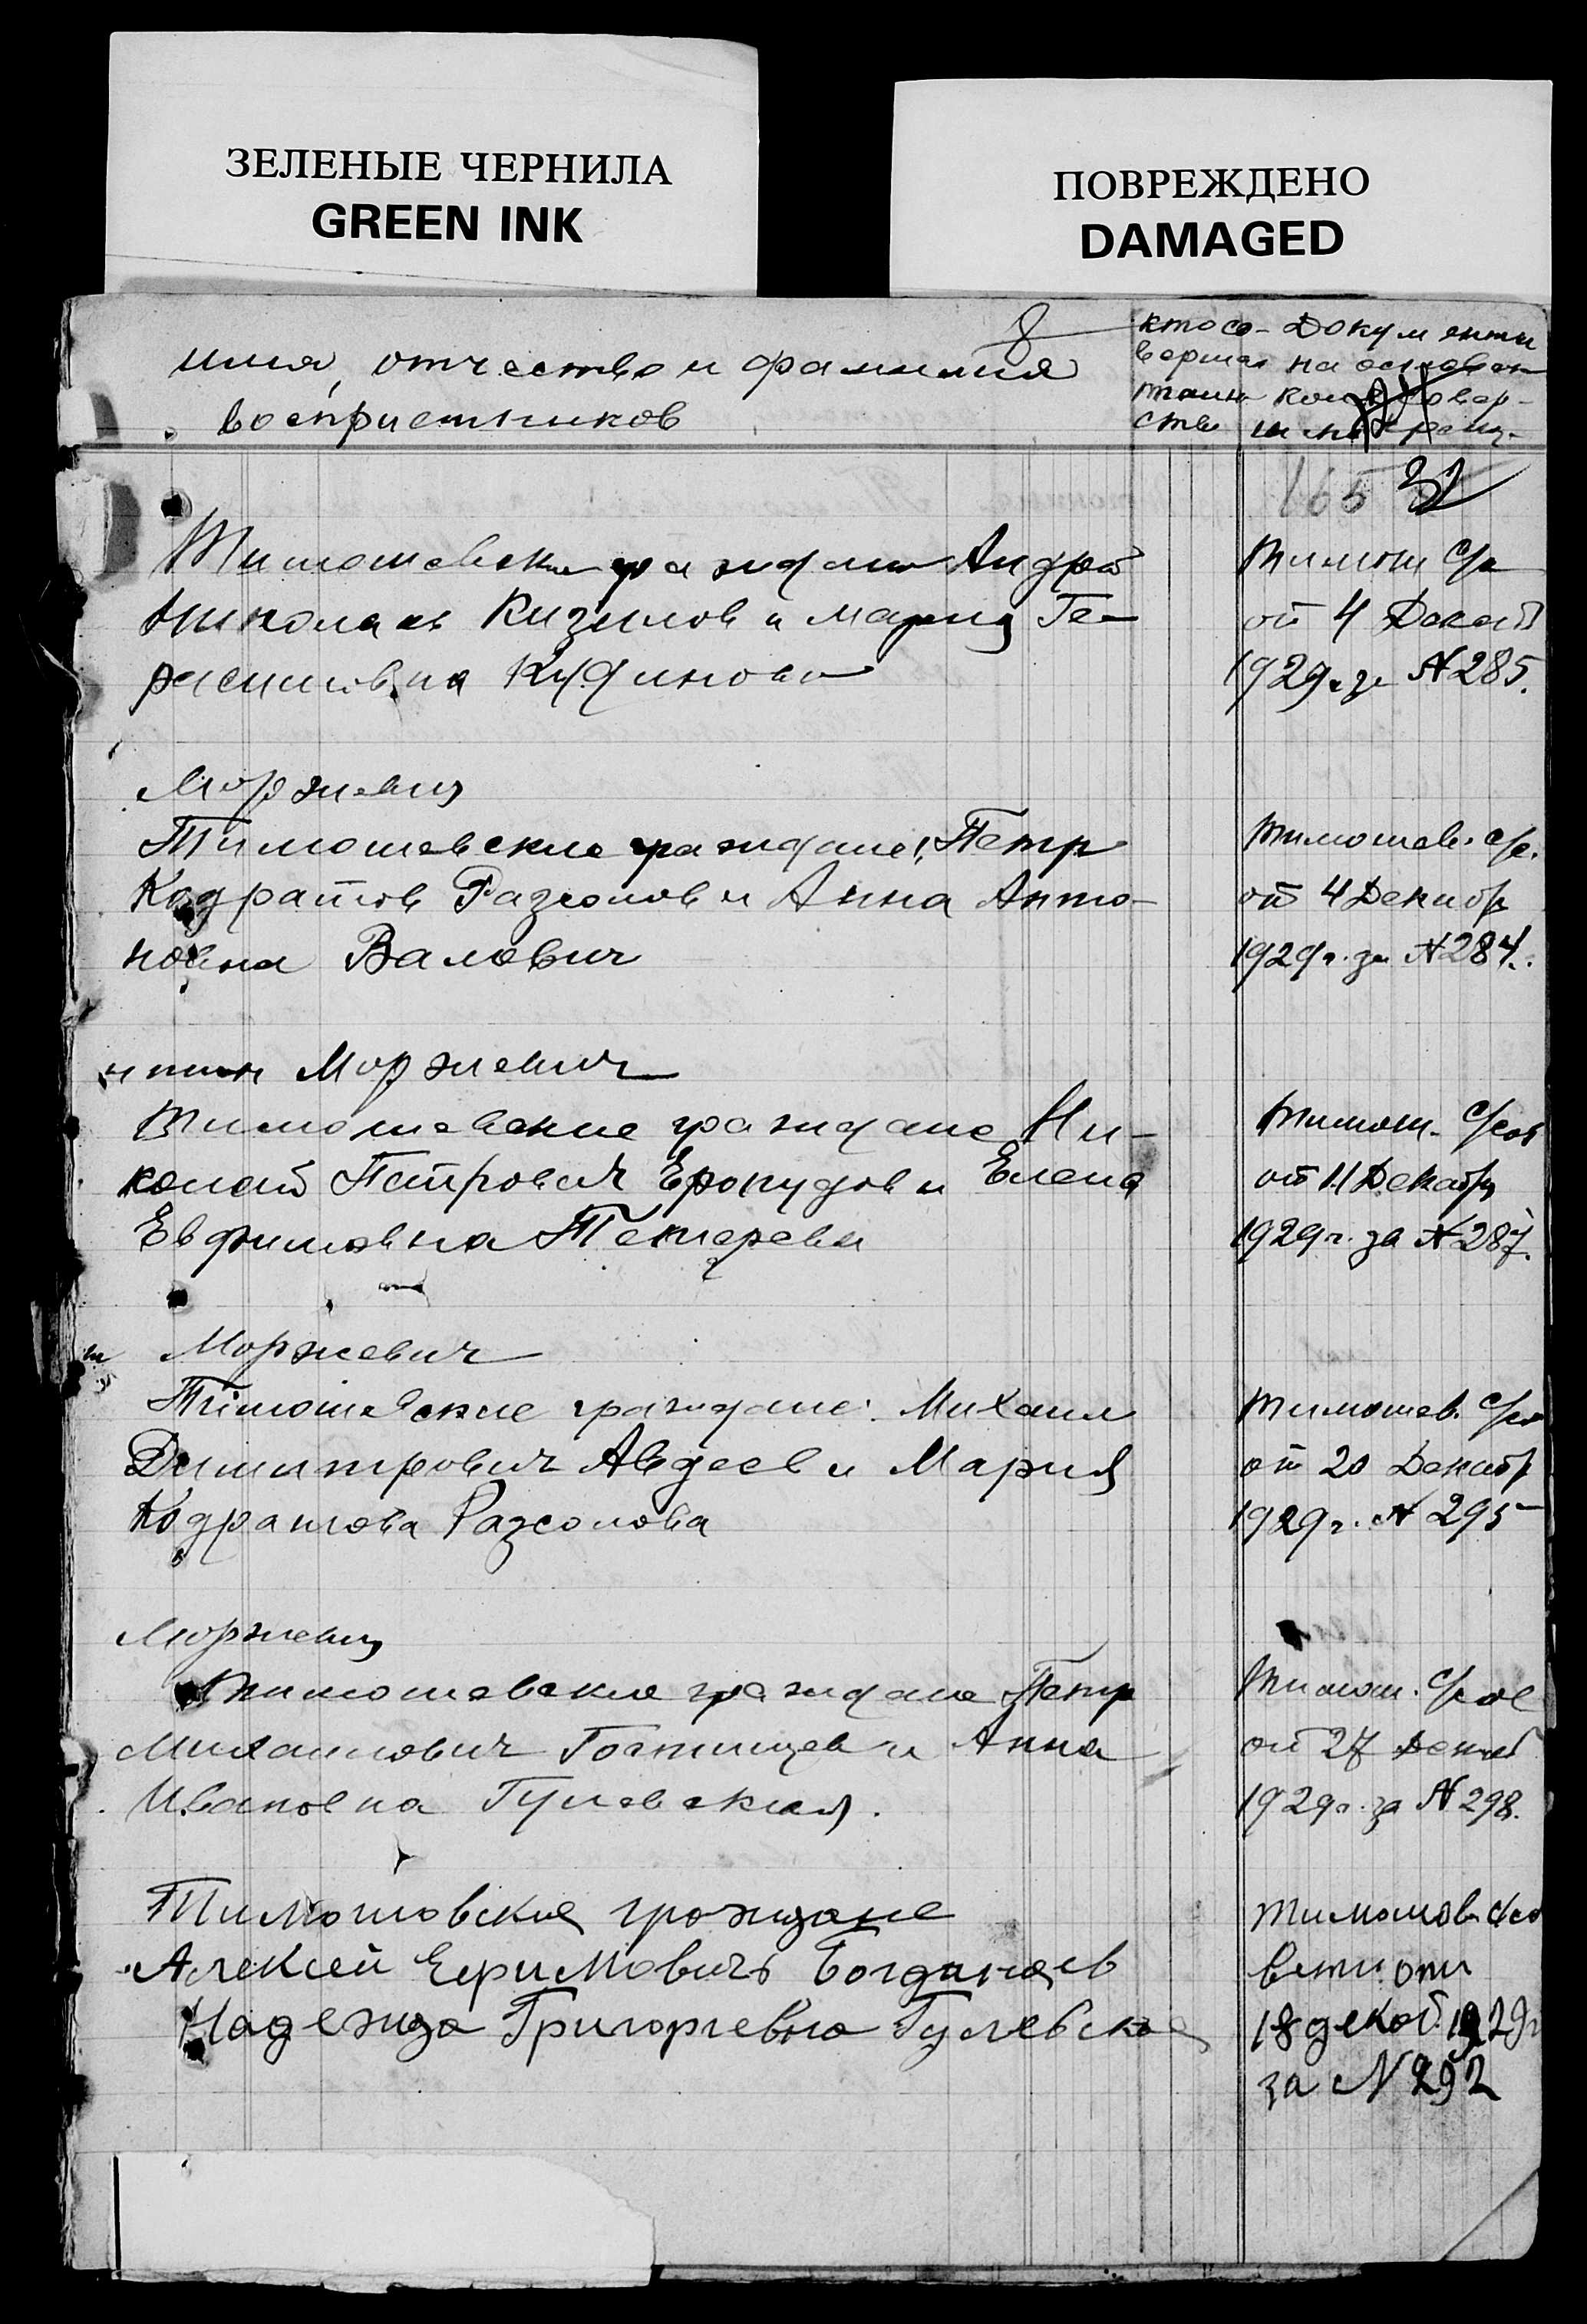 ЗЕЛЕНЫЕ ЧЕРНИЛА
GREEN INK
ПОВРЕЖДЕНО
DAMAGED
8
имя, отчество и фамилия
восприемников
кто со-
верша
таин
ство
Документы
на основан
кои совер-
165 32
Тимошевские граждане Андрей
Николаев Кизилов и Мария Ге-
расимовна Кудинова
Тимош с/с
от 4 Декаб
1929 г. за № 285.
Моржевич
Тимошевские граждане: Петр
Кодратов Разсолов и Анна Анто-
новна Валович
Тимошев. с/с.
от 4 Декабр
1929 г. за № 284.
Моржевич
Тимошевские граждане Ни-
колай Петрович Ерокудов и Елена
Евфимовна
Тимош. с/сов
от 11 Декабр
1929 г. за № 287.
Моржевич
Тимошевские граждане: Михаил
Димитрович Авдеев и Мария
Кодратова Разсолова
Тимошев. с/со
от 20 Декабр
1929 г. № 295
Моржевич
Тимошевские граждане Петр
Михаилович Гостищев и Анна
Ивановна Гулевская.
Тимош. с/сов
от 27 Декаб
1929 г. за № 298.
Тимошовские граждане
Алексей Ефимовичъ Богданов
Надежда Григорьевна Гулевская
Тимошов. с/со
вета от
18 декаб. 1929 г
за № 292